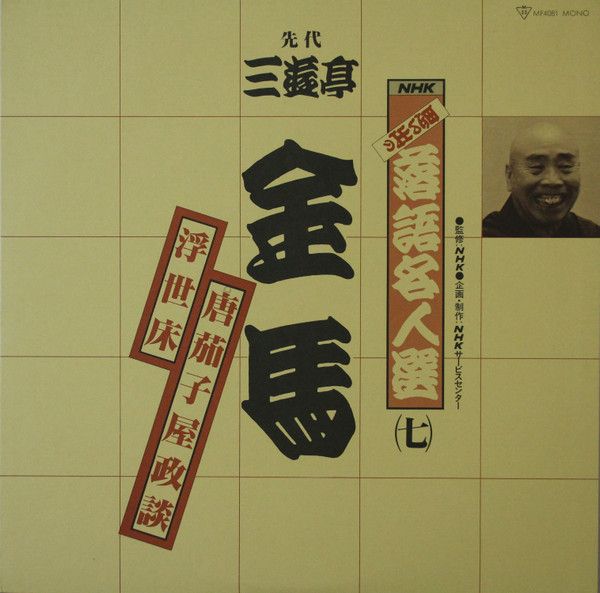 MF4081 MONO
●監修:NHK●企画・制作:NHKサービスセンター
NHK
落語名人選
(七)
先代
三遊亭
金馬
唐茄子屋政談
浮世床